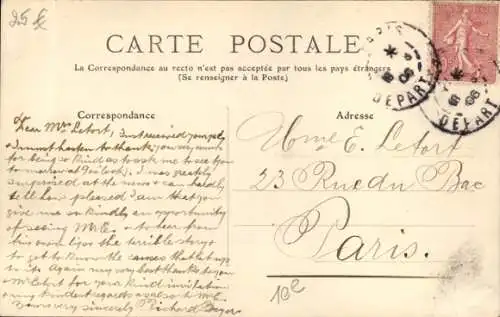 25 €
CARTE POSTALE
La Correspondance au recto n'est pas acceptée par tous les pays étrangers
(Se renseigner à la Poste)
DEPART
DEPART
Correspondance
Adresse
Dear Mrs Letort, I received yours
& I must hasten to thank you very much
for being so kind as to ask me to see you
to-morrow at six o'clock. I was greatly
surprised at the news & can hardly
tell how pleased I am that you
give me so kindly an opportunity
of seeing Mr E. & to hear from
his own lips the terrible story
to get to know the causes that led up
to it. Again my very best thanks to you
Mrs Letort for your kind invitation
my kindest regards as also to Mr L.
Yours very sincerely Richard
Mme E. Letort
23 Rue du Bac
Paris.